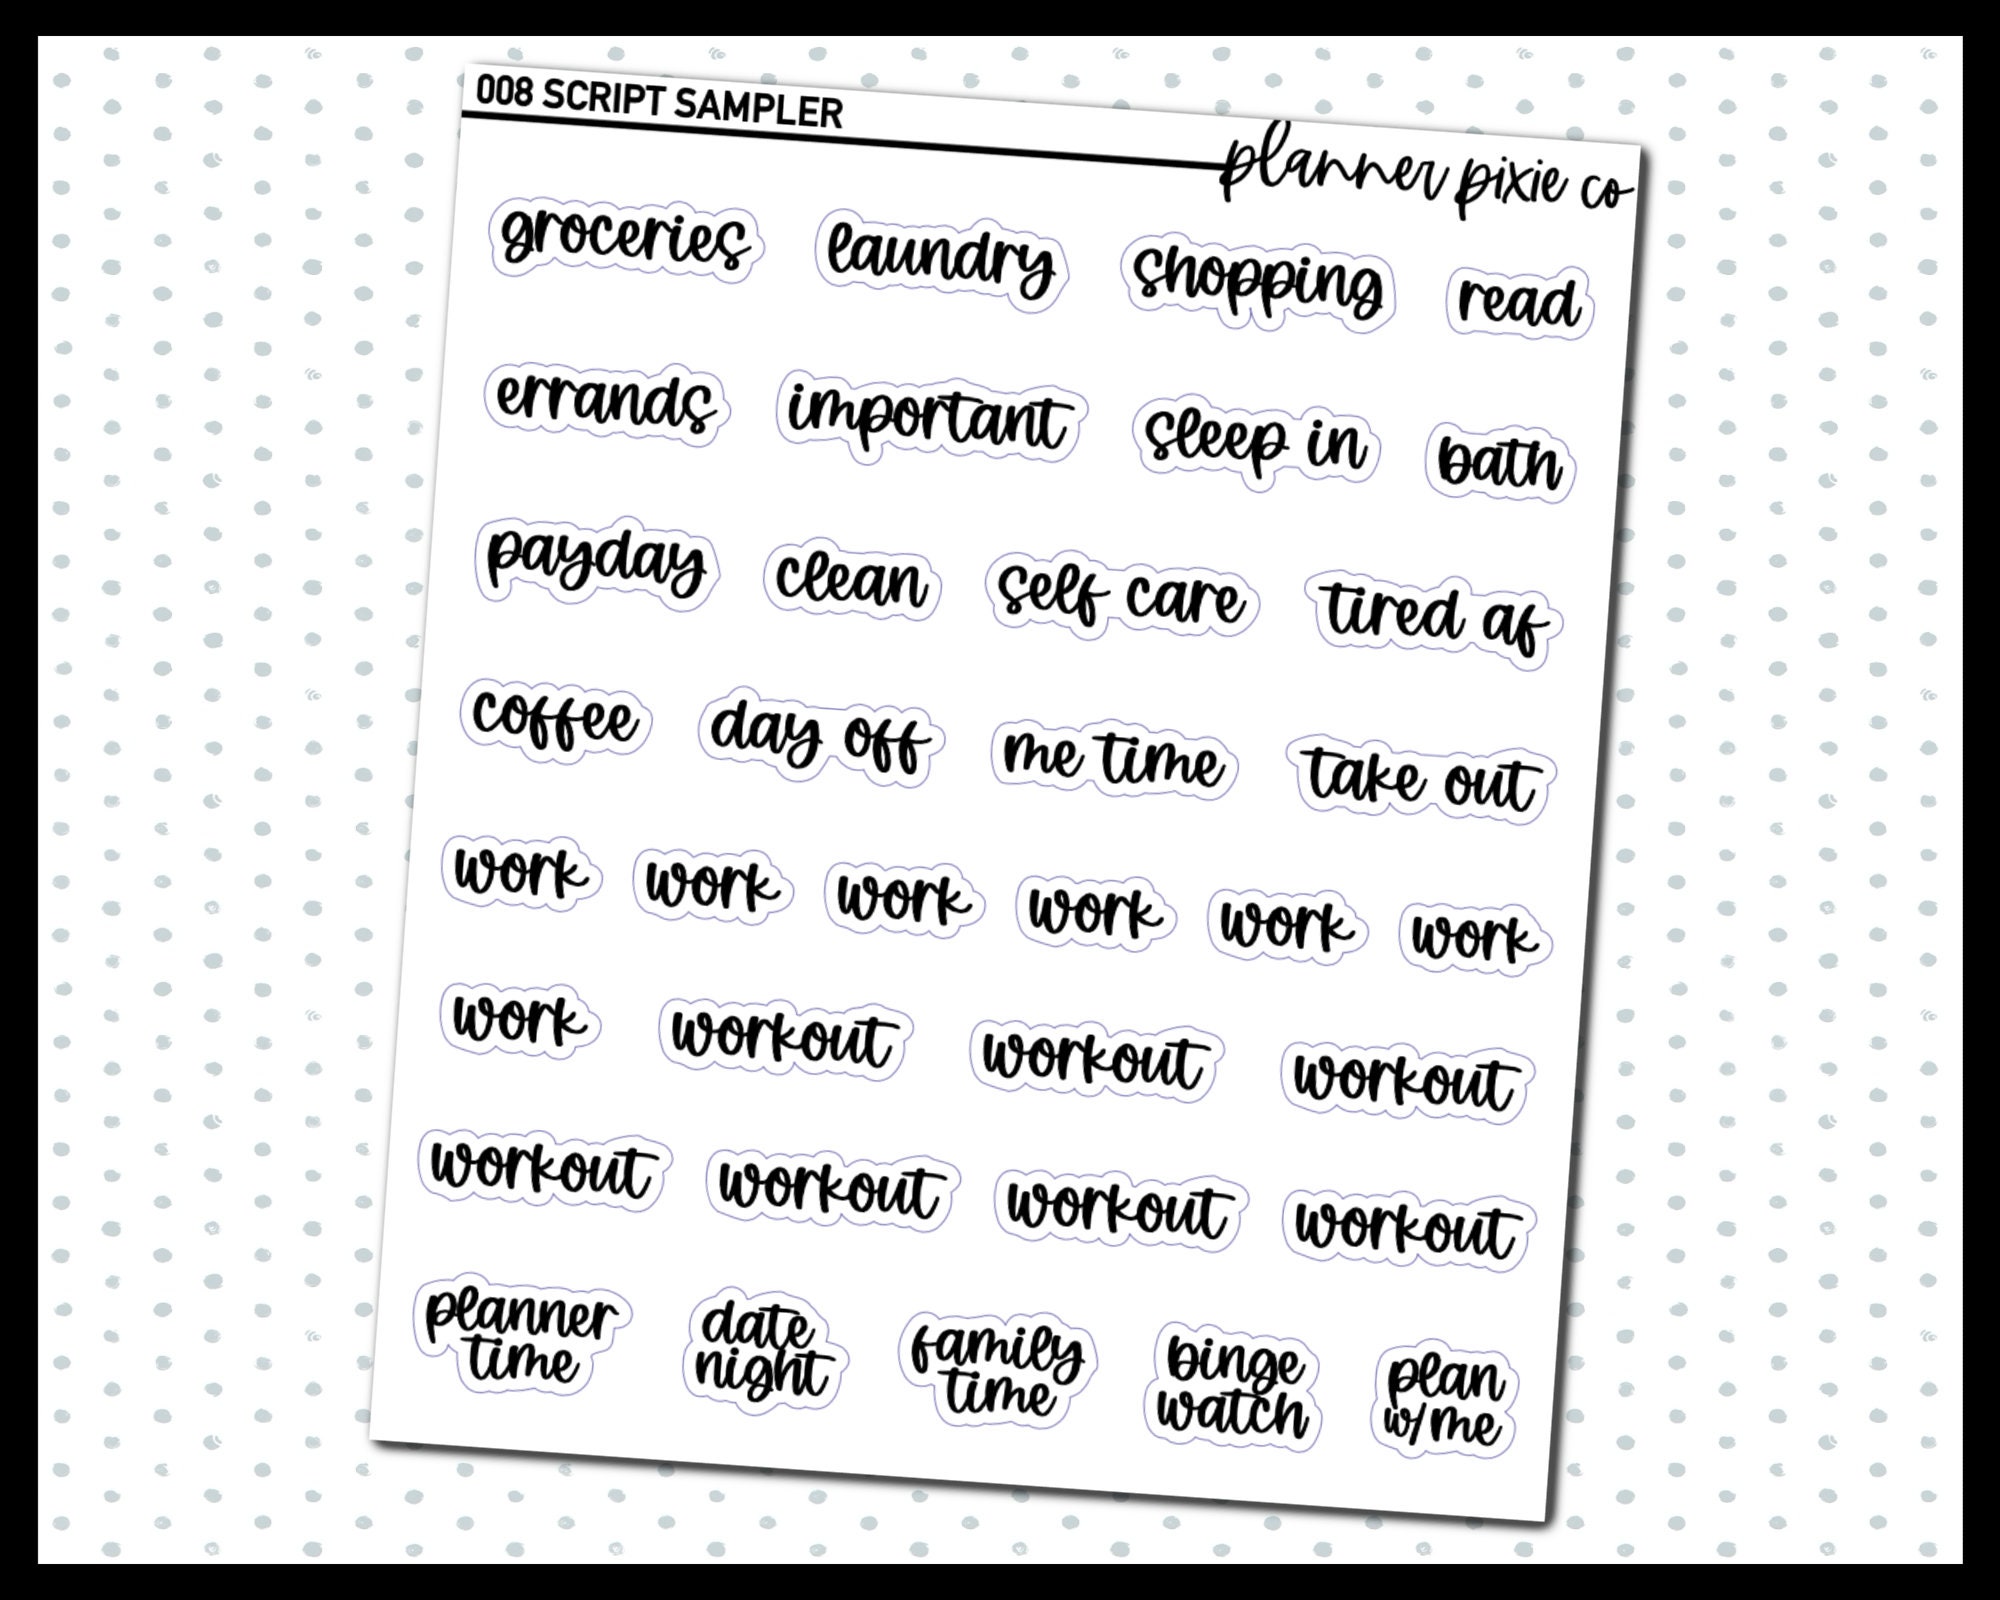 008 SCRIPT SAMPLER
planner pixie co
groceries laundry shopping read
errands important sleep in bath
payday clean self care tired af
coffee day off me time take out
work work work work work work
work workout workout workout
workout workout workout workout
planner
time
date
night
family
time
binge
watch
plan
w/me